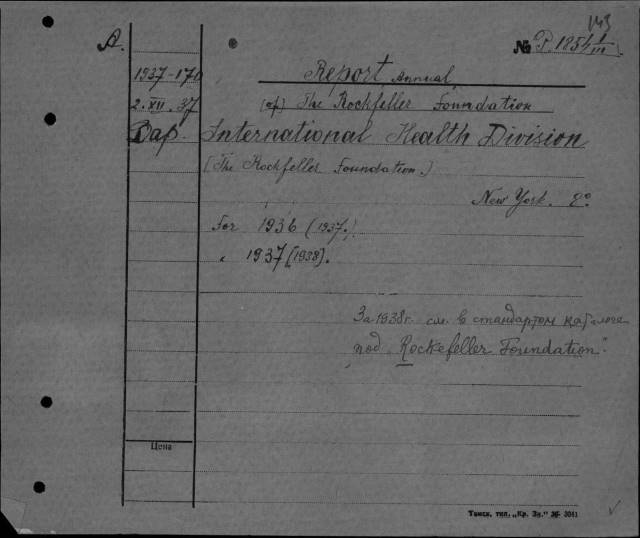 A.
№ P.1854 I/III
1937-170
Report Annual
2.XII.37
(of) The Rockfeller Foundation
Вар. International Health Division
(The Rockfeller Foundation.)
New York. 8°
For 1936 (1937.)
„ 1937 (1938).
За 1938г. см. в стандартом каталоге
под „Rockefeller Foundation".
Цена
Томск, тип. „Кр. Зн." № 3041